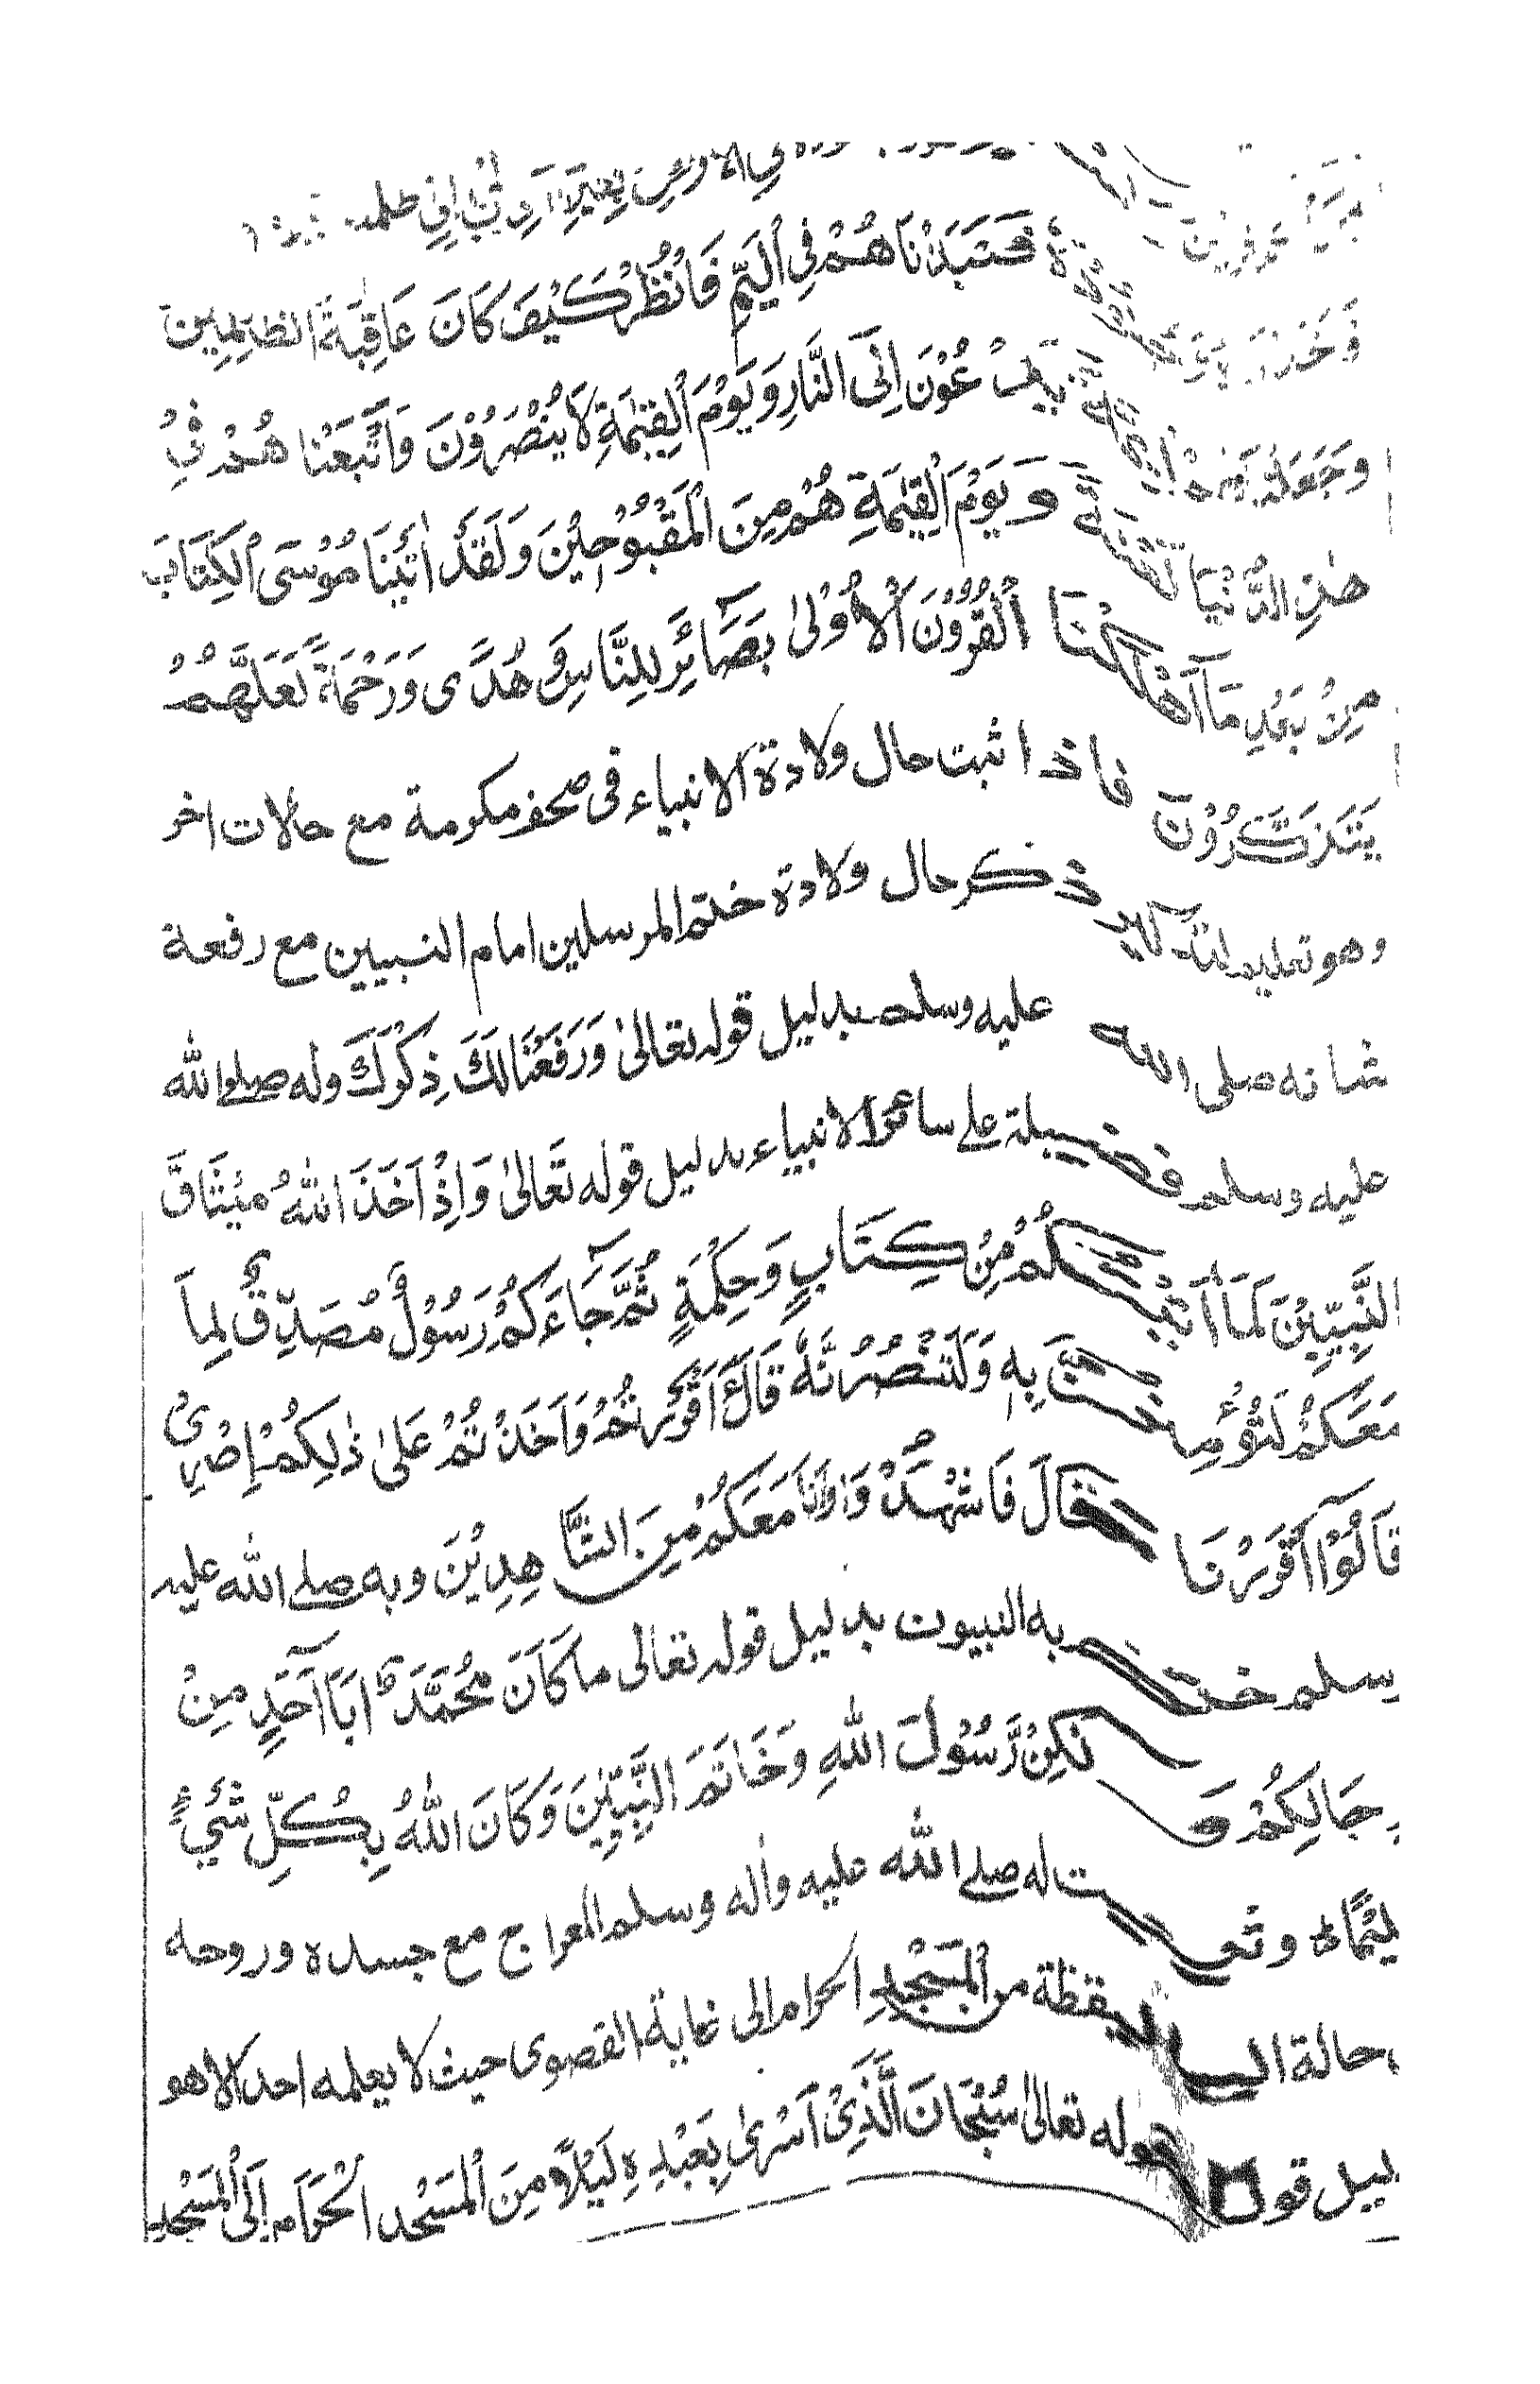 في الارض بغير
فَنَبَذْنَاهُمْ فِى الْيَمِّ فَانْظُرْ كَيْفَ كَانَ عَاقِبَةُ الظّٰلِمِيْنَ
وَجَعَلْنٰهُمْ اَئِمَّةً يَّدْعُوْنَ اِلَى النَّارِ وَيَوْمَ الْقِيٰمَةِ لَا يُنْصَرُوْنَ وَاَتْبَعْنَا هُمْ فِيْ
هٰذِهِ الدُّنْيَا لَعْنَةً وَ يَوْمَ الْقِيٰمَةِ هُمْ مِنَ الْمَقْبُوْحِيْنَ وَلَقَدْ اٰتَيْنَا مُوْسَى الْكِتَابَ
مِنْ بَعْدِ مَا اَهْلَكْنَا الْقُرُوْنَ الْاُوْلٰى بَصَآئِرَ لِلنَّاسِ وَ هُدًى وَرَحْمَةً لَعَلَّهُمْ
يَتَذَكَّرُوْنَ فاذا ثبت حال ولادة الانبياء فى صحف مكرمة مع حالات اخر
وهو تعليم لنا ذكر حال ولادة ختم المرسلين امام النبيين مع رفعة
شانه صلى الله عليه وسلم بدليل قوله تعالىٰ وَرَفَعْنَا لَكَ ذِكْرَكَ وله صلے الله
عليه وسلم فضيلة على سائر الانبياء بدليل قوله تَعَالىٰ وَاِذْ اَخَذَ اللهُ مِيْثَاقَ
النَّبِيِّيْنَ لَمَا اٰتَيْتُكُمْ مِنْ كِتَابٍ وَحِكْمَةٍ ثُمَّ جَآءَكُمْ رَسُوْلٌ مُصَدِّقٌ لِمَا
مَعَكُمْ لَتُؤْمِنُنَّ بِهٖ وَلَتَنْصُرُنَّهٗ قَالَ ءَاَقْرَرْتُمْ وَاَخَذْتُمْ عَلىٰ ذٰلِكُمْ اِصْرِيْ
قَالُوْا اَقْرَرْنَا قَالَ فَاشْهَدُوْا وَاَنَا مَعَكُمْ مِنَ الشَّاهِدِيْنَ وبه صلے الله عليه
وسلم ختم به النبيون بدليل قوله تعالى مَا كَانَ مُحَمَّدٌ اَبَا اَحَدٍ مِنْ
رِجَالِكُمْ وَلٰكِنْ رَّسُوْلَ اللهِ وَخَاتَمَ النَّبِيّٖنَ وَكَانَ اللهُ بِكُلِّ شَيْءٍ
عَلِيْمًا وثبت له صلے الله عليه واٰله وسلم المعراج مع جسده وروحه
فى حالة اليقظة من الْمَسْجِدِ الحرام الى غاية القصوى حيث لا يعلمه احد الا هو
بدليل قوله تعالىٰ سُبْحَانَ الَّذِيْ اَسْرٰى بِعَبْدِهٖ لَيْلًا مِنَ الْمَسْجِدِ الْحَرَامِ اِلَى الْمَسْجِدِ